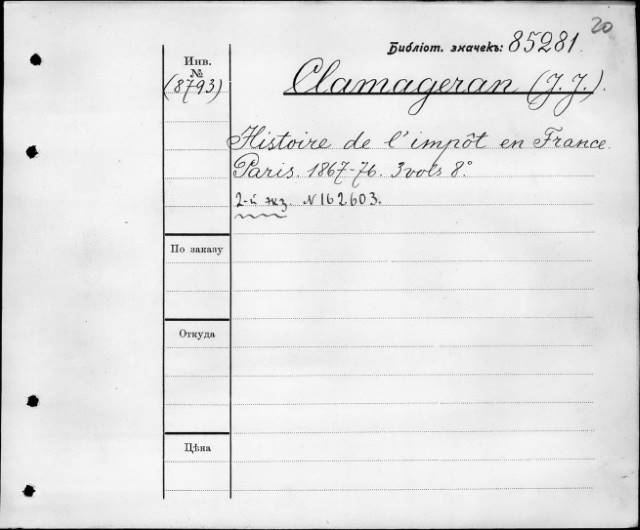 20
Библіот. значекъ: 85281.
Инв.
№
(8793)
Clamageran (J. J.).
Histoire de l'impôt en France.
Paris. 1867-76. 3 vols 8°
2-й экз. N162603.
По заказу
Откуда
Цѣна